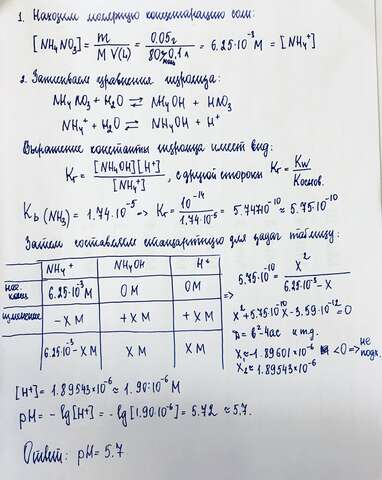 1. Находим молярную концентрацию соли:
[NH₄NO₃] = m / M V(L) = 0.05г / 80г/моль·0,1л = 6.25·10⁻³ M = [NH₄⁺]
2. Записываем уравнения гидролиза:
NH₄NO₃ + H₂O ⇄ NH₄OH + HNO₃
NH₄⁺ + H₂O ⇄ NH₄OH + H⁺
Выражение константы гидролиза имеет вид:
Kг = [NH₄OH][H⁺] / [NH₄⁺], с другой стороны Kг = Kw / Kоснов.
Kb (NH₃) = 1.74·10⁻⁵ => Kг = 10⁻¹⁴ / 1.74·10⁻⁵ = 5.747·10⁻¹⁰ ≈ 5.75·10⁻¹⁰
Затем составляем стандартную для задач таблицу:
NH₄⁺ NH₄OH H⁺
нач. конц 6.25·10⁻³M 0 M 0 M
изменение -x M +x M +x M
6.25·10⁻³-x M x M x M
=> 5.75·10⁻¹⁰ = x² / 6.25·10⁻³-x
x² + 5.75·10⁻¹⁰x - 3.59·10⁻¹² = 0
D = b²-4ac и т.д.
x₁ ≈ -1.89601·10⁻⁶ M <0 => не подх.
x₂ ≈ 1.89543·10⁻⁶
[H⁺] = 1.89543·10⁻⁶ ≈ 1.90·10⁻⁶ M
pH = -lg[H⁺] = -lg[1.90·10⁻⁶] = 5.72 ≈ 5.7.
Ответ: pH = 5.7